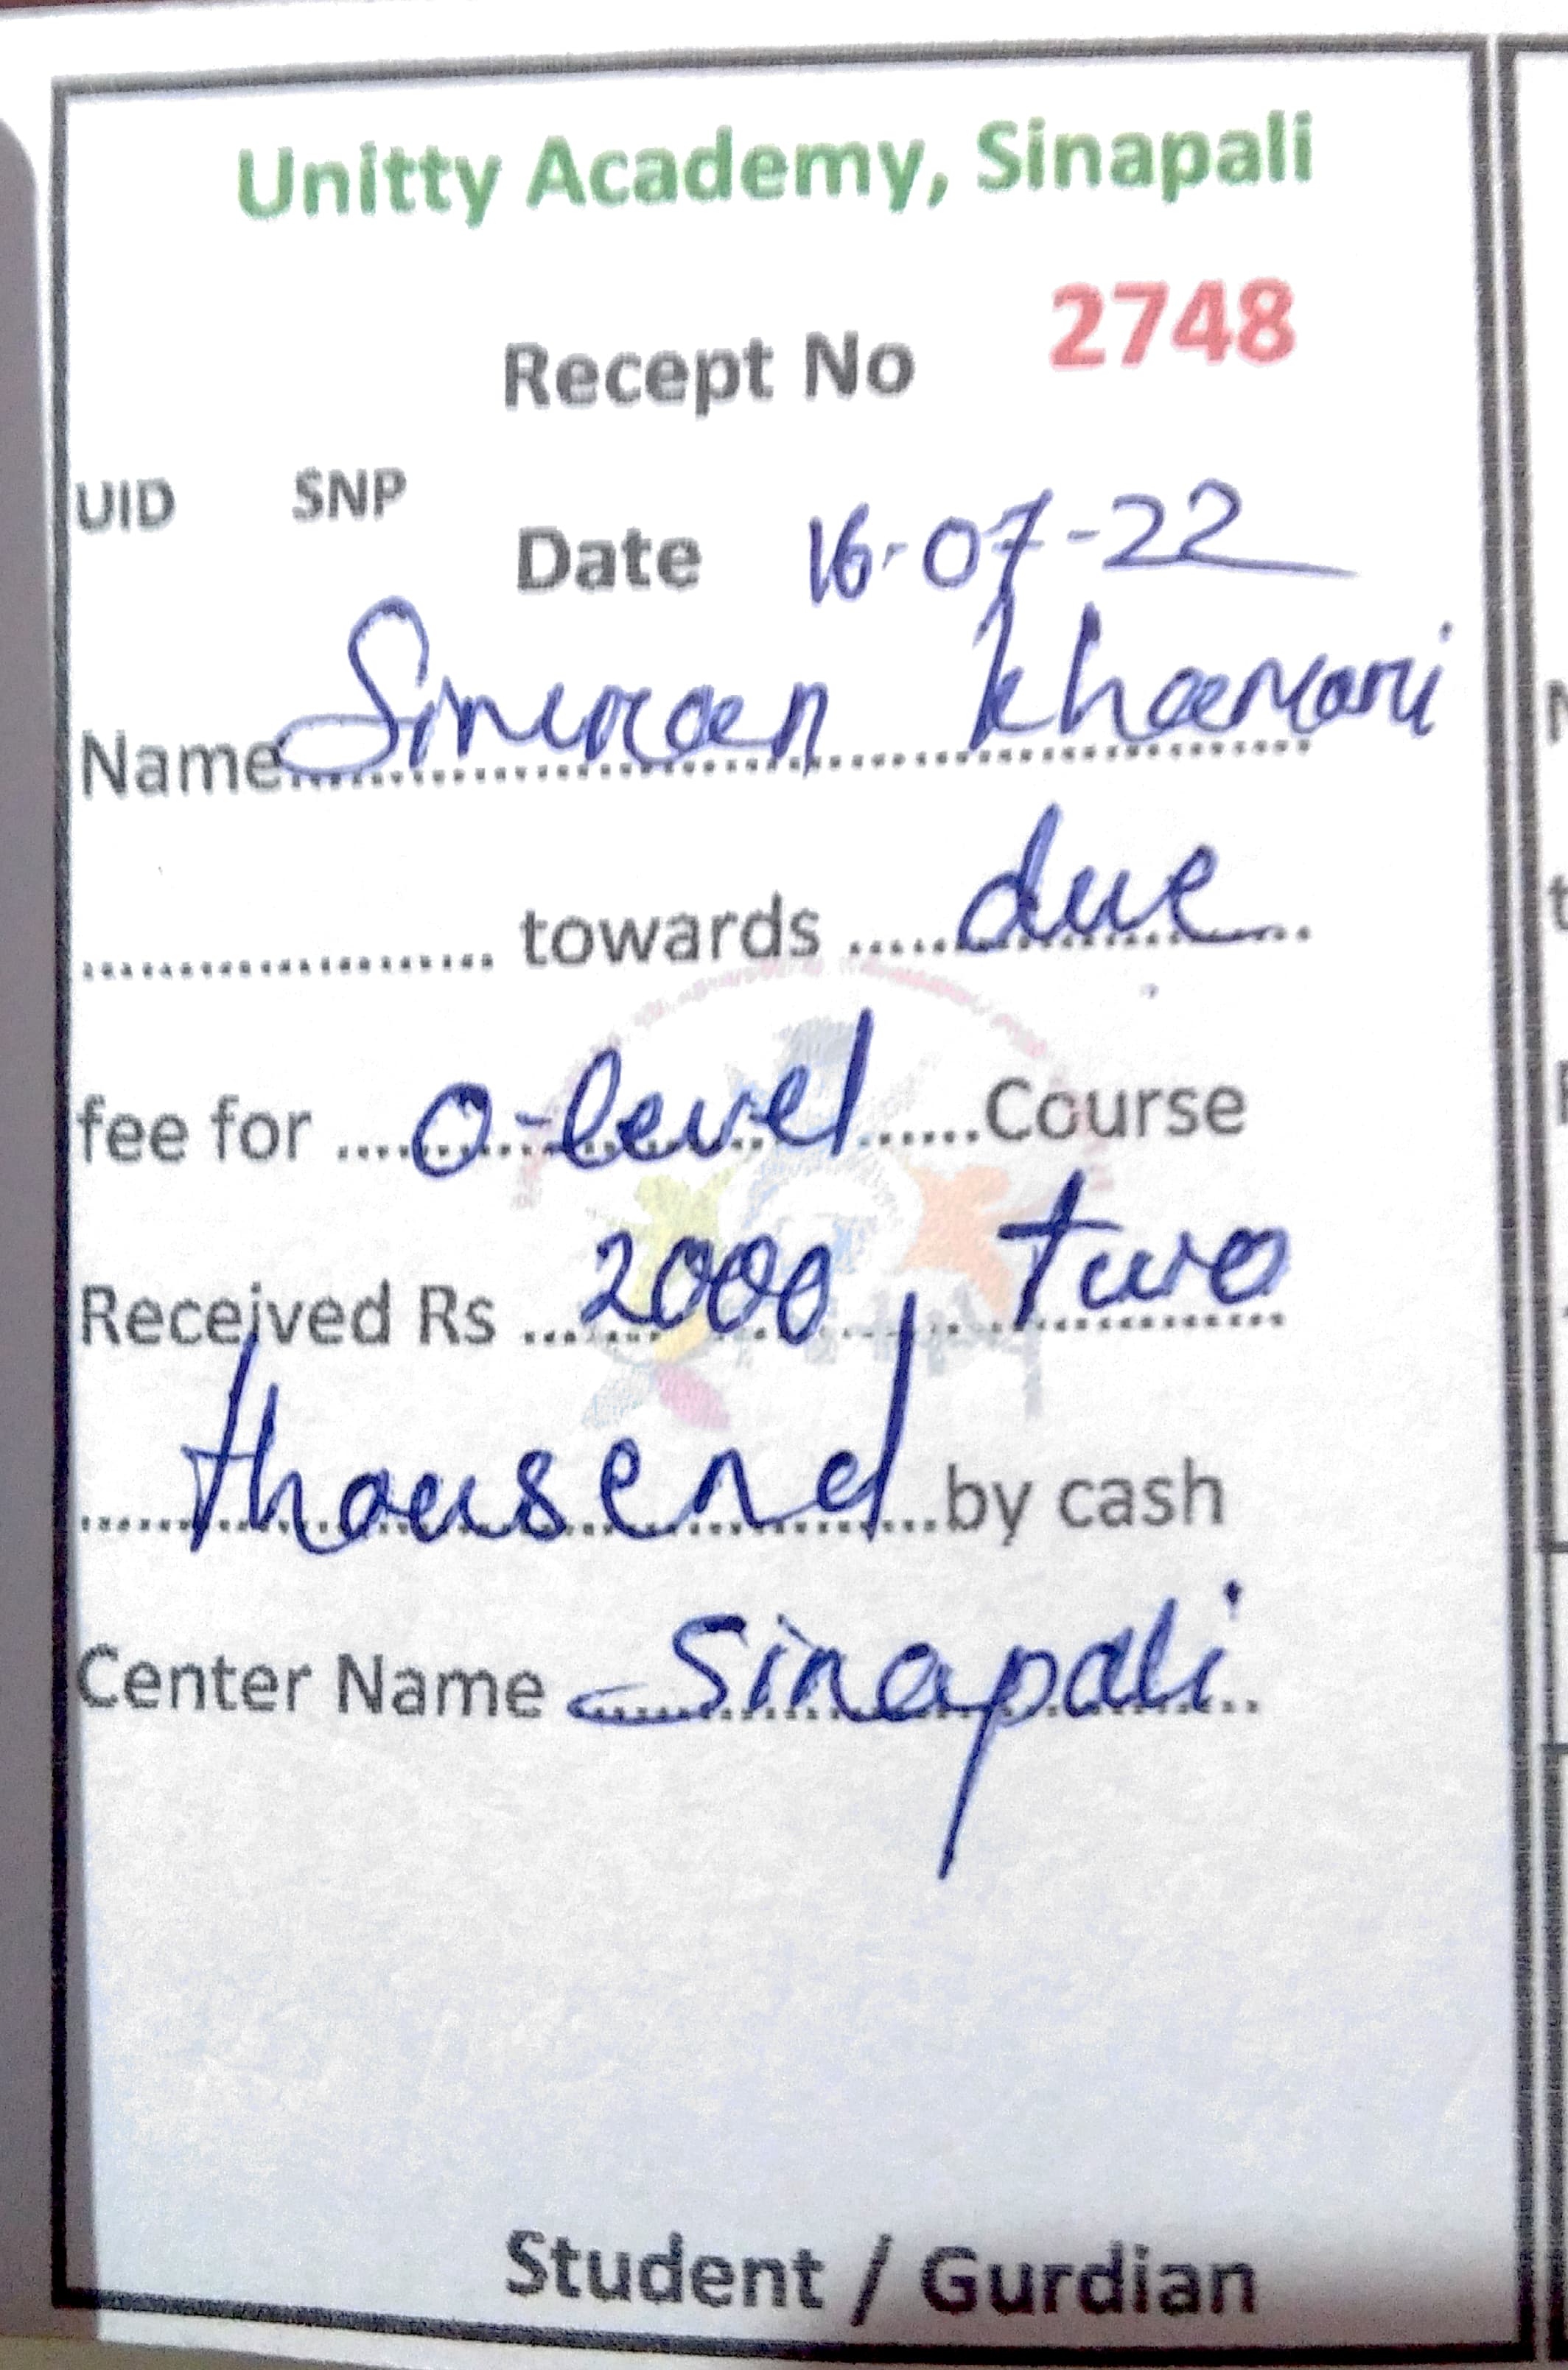 Unitty Academy, Sinapali
Recept No 2748
UID SNP
Date 16-07-22
Name Simran Khamari
.................... towards ..... due
fee for ... O-level ...... Course
Received Rs ... 2000, two
thousend by cash
Center Name Sinapali
Student / Gurdian